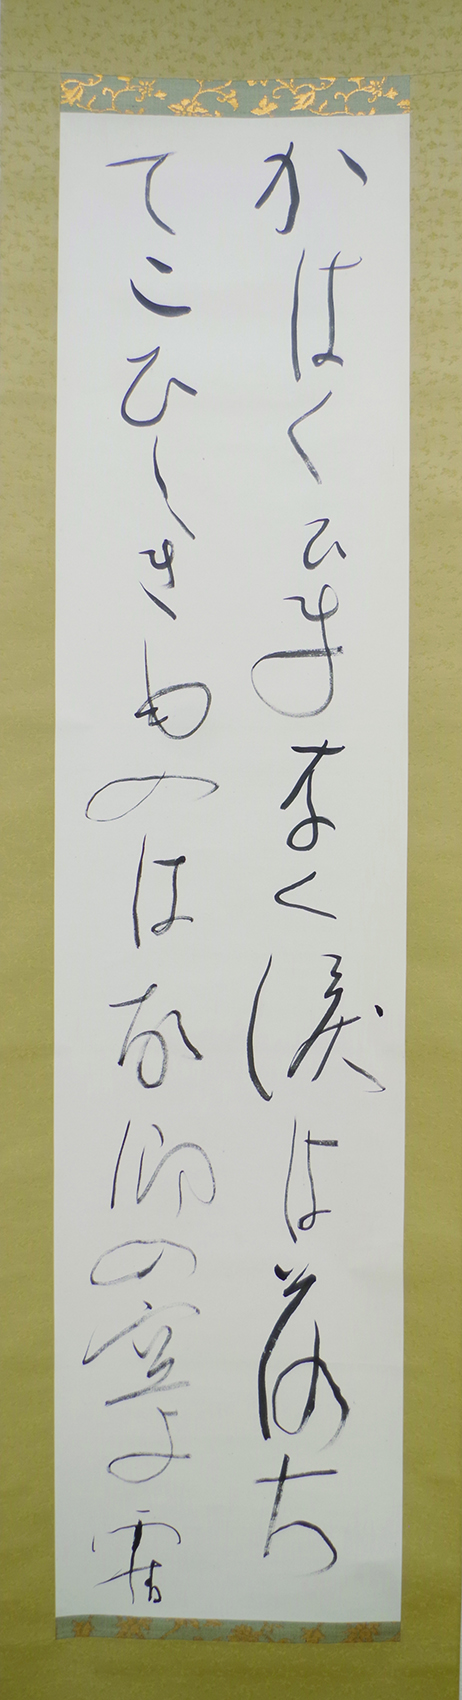 かはくひまなく涙は落ち
てこひしきものは故郷の空よ 雨情